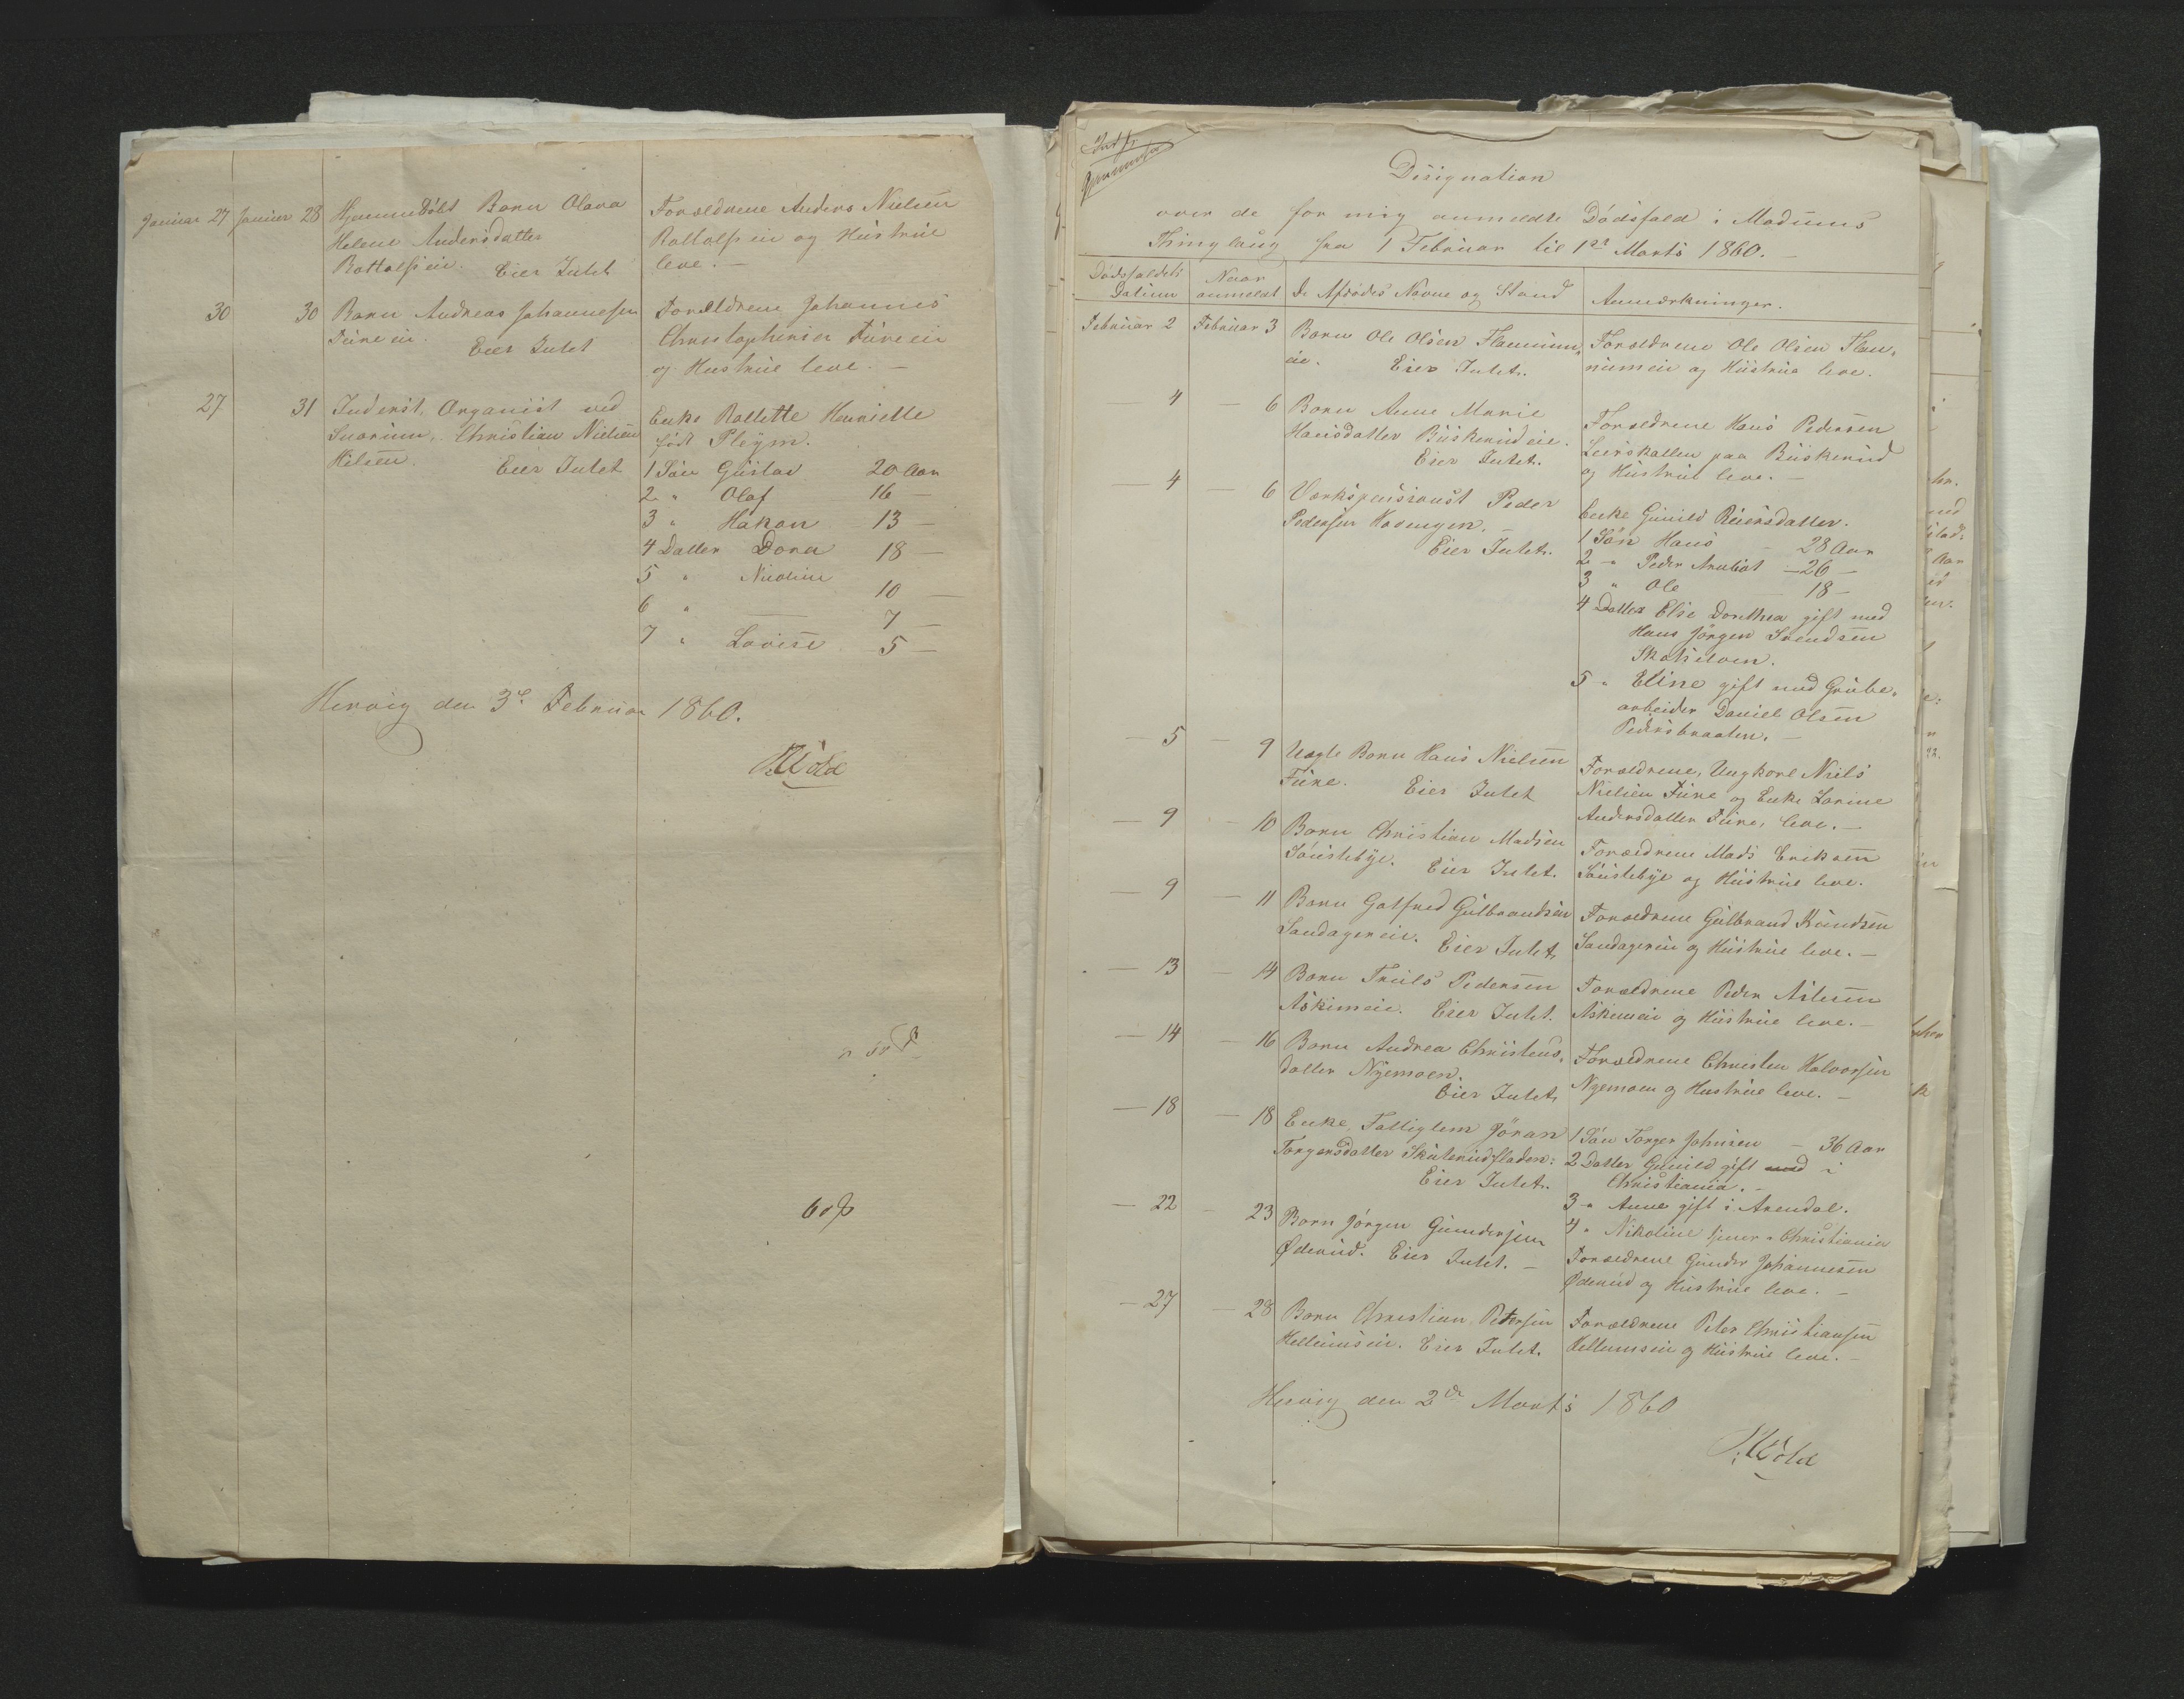 Januar 27 Januar 28 Hjemmedöbt Barn Olava
Helene Andersdatter
Battalfseie. Eier Intet
Forældrene Anders Nielsen
Battalfseie og Hustrue
leve. —
30 30 Barn Andreas Johannesen
Fureeie. Eier Intet
Forældrene Johannes
Christophersen Fureeie
og Hustrue leve. —
27 31 Inderst, Organist ved
Snarum, Christian Nielsen
Nilsen. Eier Intet
Enke Rallette Henriette
født Pleÿm.
1 Sön Gustav 20 Aar
2 " Olaf 16 —
3 " Hakon 13 —
4 Datter Dora 18 —
5 " Nicoline 10 —
6 " — 7 —
7 " Lovise 5 —
Hervig den 3de Februar 1860.
Wold
6 β
Designation
over de for mig anmeldte Dödsfald i Modums
Thinglaug fra 1 Februar til 1ste Marts 1860. —
Dödsfaldets Datum
Naar anmeldt
De Afdödes Navne og Stand
Anmærkninger.
Februar 2 Februar 3 Barn Ole Olsen Flannum-
eie. Eier Intet.
Forældrene Ole Olsen Flan-
numeie og Hustrue leve.
— 4 — 6 Barn Anne Marie
Hansdatter Buskerudeie.
Eier Intet.
Forældrene Hans Pedersen
Leirskallen paa Buskerud
og Hustrue leve. —
— 4 — 6 Værkspensionist Peder
Pedersen Hovengen. —
Eier Intet.
Enke Gunild Reiersdatter.
1 Sön Hans — 28 Aar
2 " Peder Anulict — 26 —
3 " Ole 18 —
4 Datter Else Dorthea gift med
Hans Jörgen Svendsen
Skotselven.
5 " Eline gift med Grube-
arbeider Daniel Olsen
Pedersbraaten. —
— 5 — 9 Uægte Barn Hans Nielsen
Fure. Eier Intet
Forældrene, Ungkarl Niels
Nielsen Fure og Enke Lorine
Andersdatter Fure, leve. —
— 9 — 10 Barn Christian Madsen
Söustebÿe. Eier Intet.
Forældrene Mads Eriksen
Söustebÿe og Hustrue leve.
— 9 — 11 Barn Gotfred Gulbrandsen
Sandagereie. Eier Intet.
Forældrene Gulbrand Knudsen
Sandagereie og Hustrue leve. —
— 13 — 14 Barn Truls Pedersen
Askimeie. Eier Intet.
Forældrene Peder Aslesen
Askimeie og Hustrue leve. —
— 14 — 16 Barn Andrea Christens-
datter Nyemoen.
Eier Intet.
Forældrene Christen Halvorsen
Nyemoen og Hustrue leve. —
— 18 — 18 Enke, Fattiglem Göran
Torgersdatter Skuterudfladen:
Eier Intet.
1 Sön Torger Johnsen — 36 Aar
2 Datter Gunild gift med i
Christiania. —
3 " Anne gift i Arendal.
4 " Nikoline tjener i Christiania
— 22 — 23 Barn Jörgen Gundersen
Øderud. Eier Intet. —
Forældrene Gunder Johannesen
Øderud og Hustrue leve. —
— 27 — 28 Barn Christian Petersen
Hellumseie. Eier Intet.
Forældrene Peter Christiansen
Hellumseie og Hustrue leve. —
Hervig den 2de Marts 1860
Wold